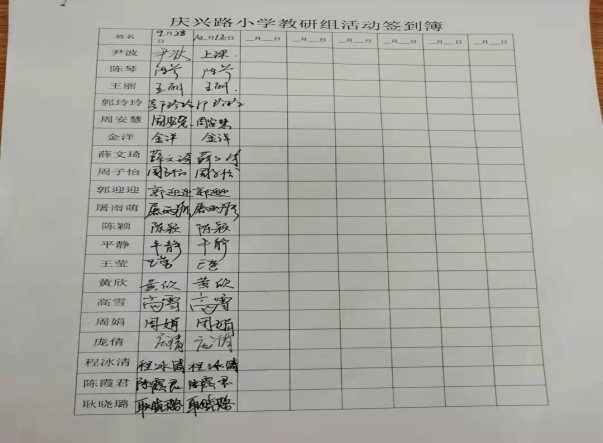 庆兴路小学教研组活动签到簿
姓名 9月28日 10月12日 __月__日 __月__日 __月__日 __月__日 __月__日 __月__日
尹波 尹波 上课.
陈琴 陈琴 陈琴
王丽 王丽 王丽
郭玲玲 郭玲玲 郭玲玲
周安慧 周安慧 周安慧
金洋 金洋 金洋
薛文琦 薛文琦 薛文琦
周子怡 周子怡 周子怡
郭迎迎 郭迎迎 郭迎迎
屠雨萌 屠雨萌 屠雨萌
陈颖 陈颖 陈颖
平静 平静 平静
王莹 王莹 王莹
黄欣 黄欣 黄欣
高雪 高雪 高雪
周娟 周娟 周娟
庞倩 庞倩 庞倩
程冰清 程冰清 程冰清
陈霞君 陈霞君 陈霞君
耿晓璐 耿晓璐 耿晓璐